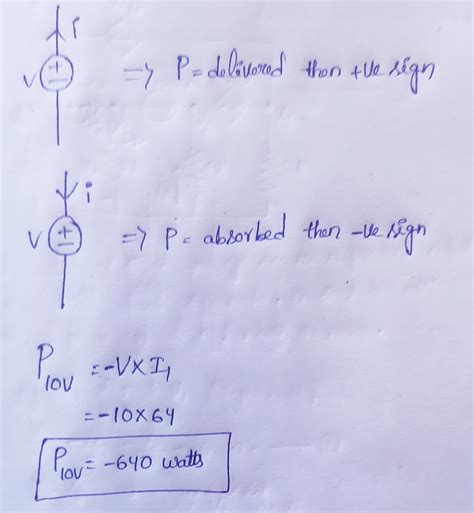 i
V + − => P = delivered then +ve sign
i
V + − => P = absorbed then -ve sign
P10V = -V×I1
= -10×64
P10V = -640 watts